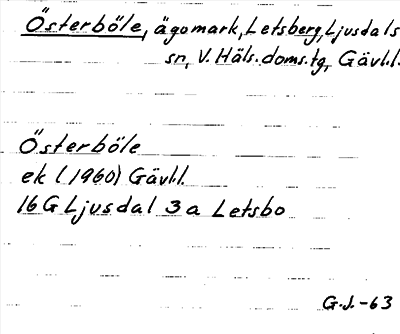 Österböle, ägomark, Letsberg, Ljusdals
sn, V. Häls. doms.tg, Gävl.l.
Österböle
ek (1960) Gävl.l.
16 G Ljusdal 3 a Letsbo
G.J.-63